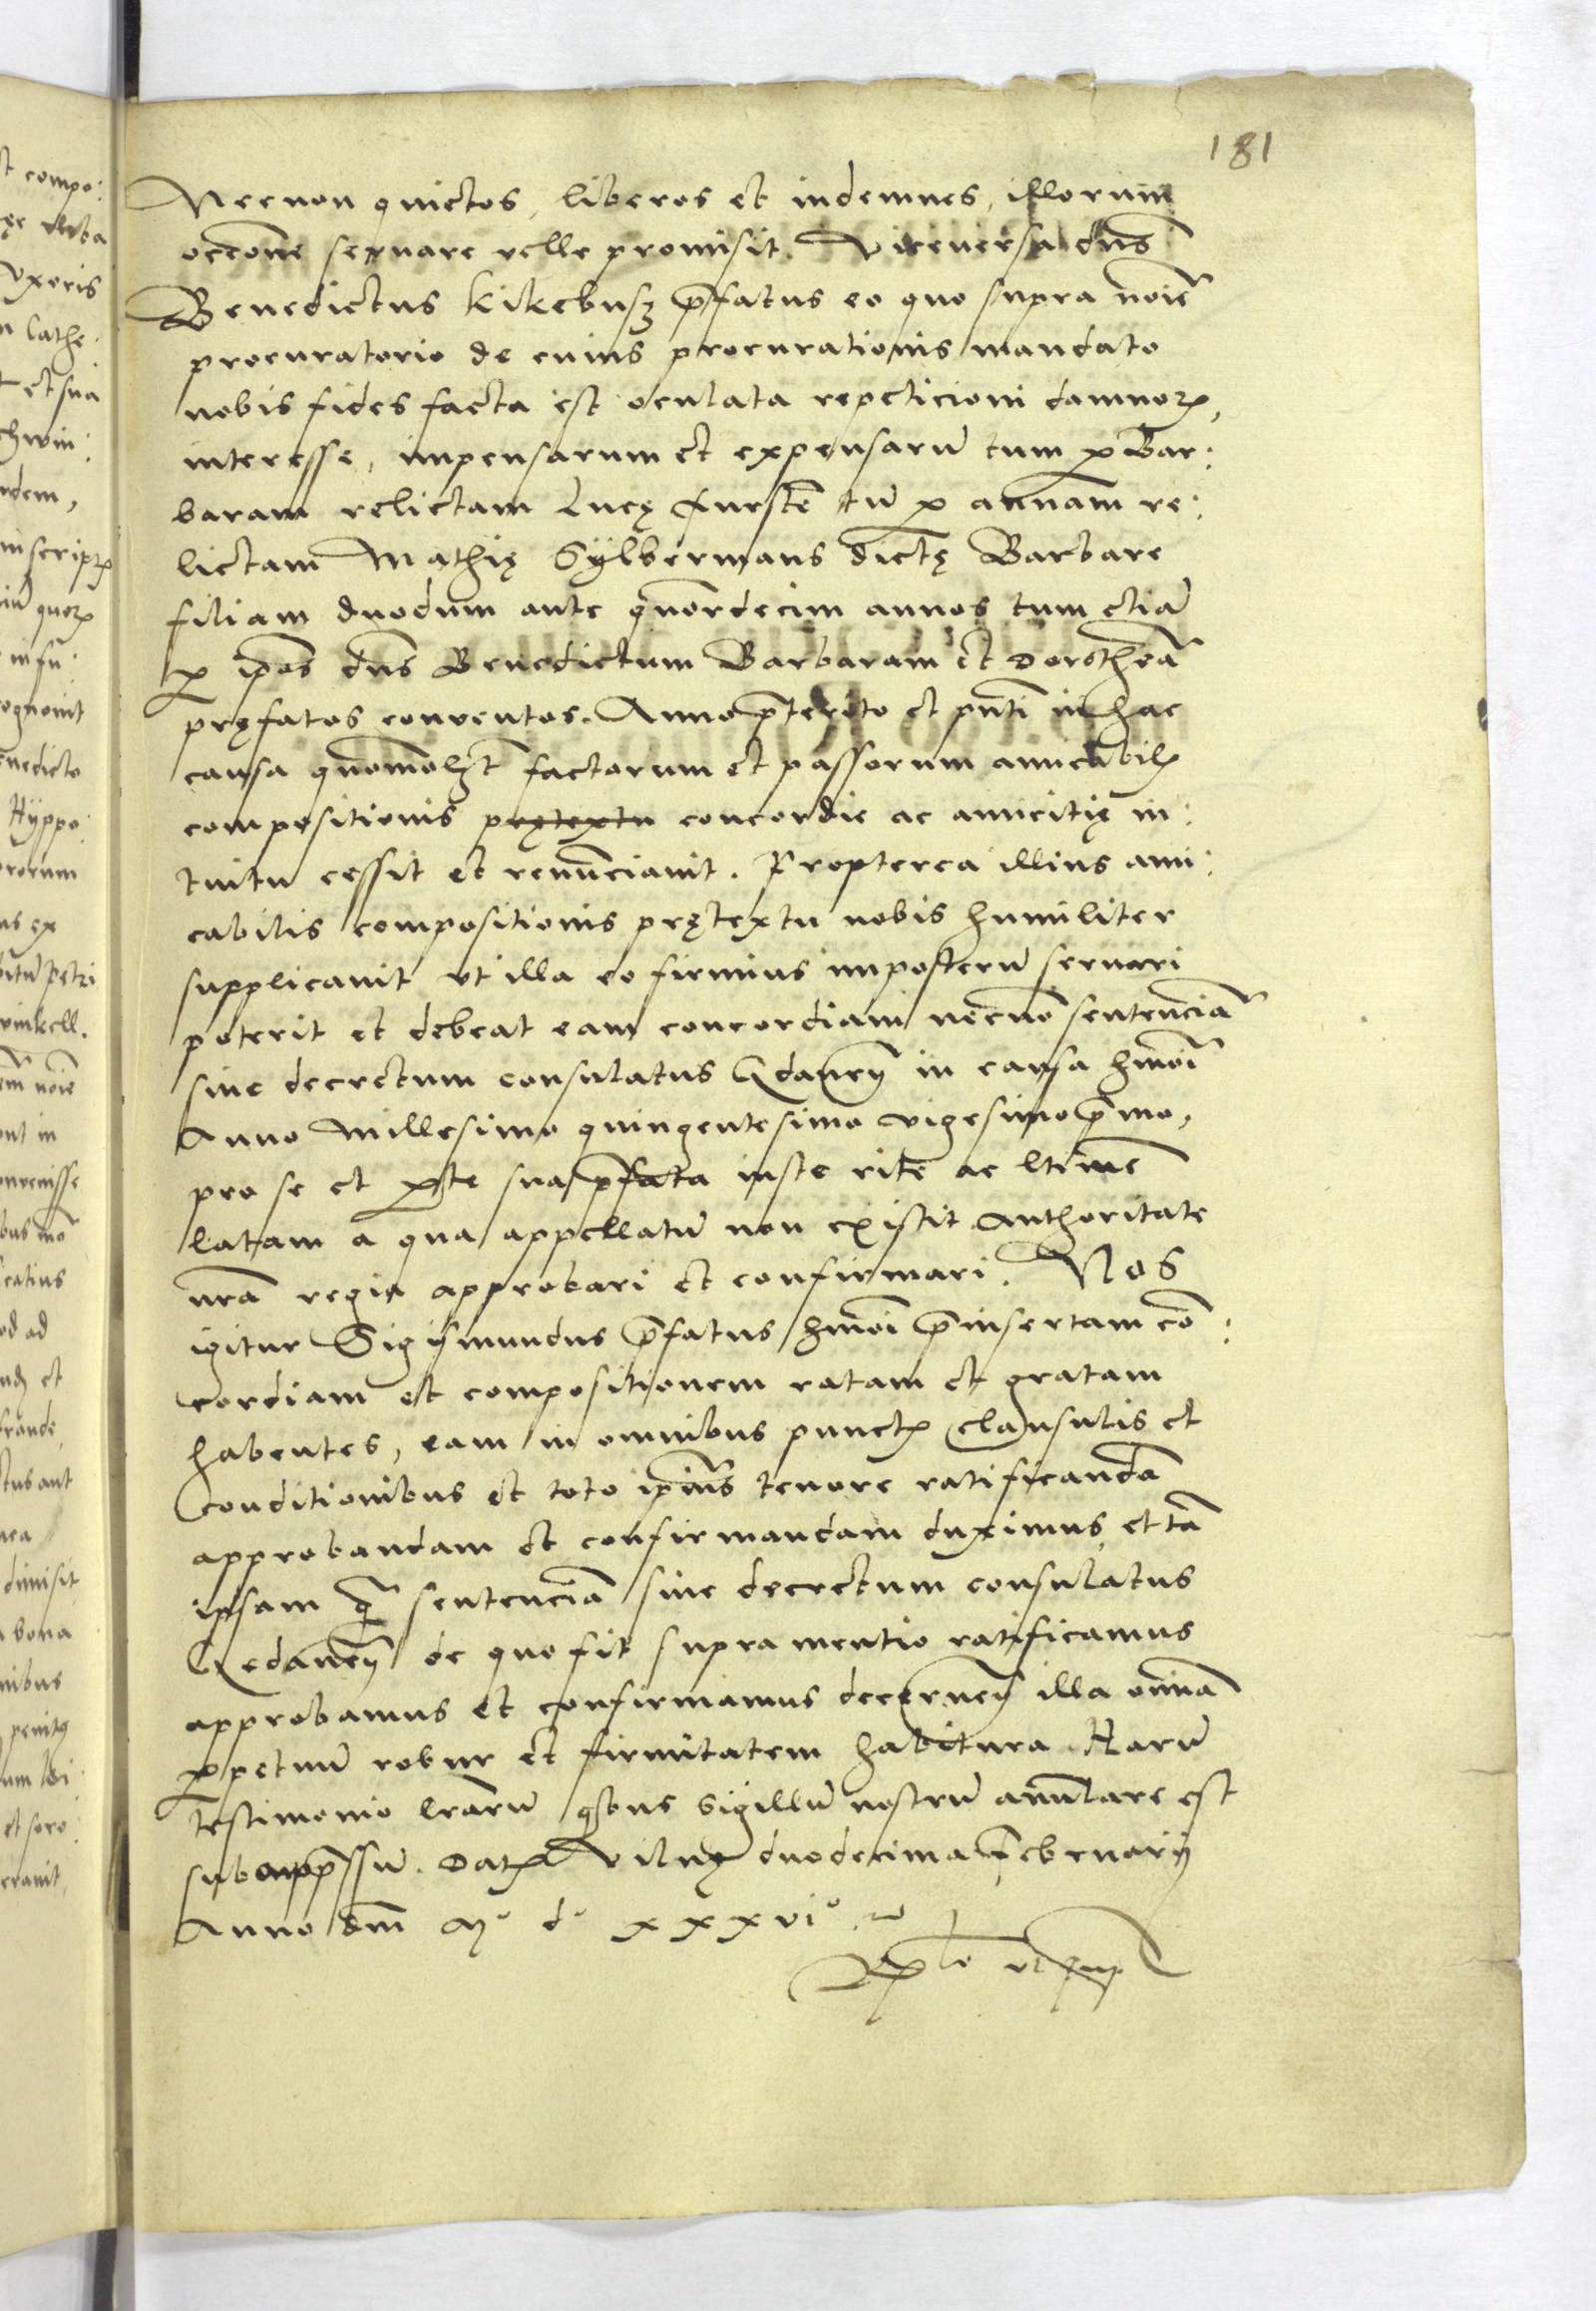 181
Necnon quietos, liberos et indemnes, illorum
occōne seruare velle promisit. Viceuersa dns̄
Benedictus Kikebusz p̄fatus eo quo supra noīe
procuratorio de cuius procurationis mandato
nobis fides facta est oculata repeticioni damnorꝝ,
interesse, impensarum et expensarū tum ꝑ Bar:
baram relictam Lucę Furstē tū ꝑ annam re:
lictam Mathię Sylbermans dictę Barbare
filiam duodum ante quordecim annos tum etiā
ꝑ ip̄os dn̄s Benedictum Barbaram et Dorotheā
pręfatos conuentos. Anno p̄terito et pn̄ti in hac
causa quomōlꝫt factorum et passorum amicabilꝭ
compositionis prętextu concordie ac amicitię in:
tuitu cessit et renūnciauit. Propterea illius ami:
cabilis compositionis prętextu nobis humiliter
supplicauit vt illa eo firmius imposterū seruari
poterit et debeat eam concordiam necnō sentenciā
siue decretum consulatus Gdaneñ in causa hmōi
Anno Millesimo quingentesimo vigesimo p̄mo,
pro se et ꝑte sua p̄fata iuste rite ac ltīme
latam a qua appellatū non existit authoritate
nrā regia approbari et confirmari. Nos
igitur Sigismundus p̄fatus hmōi p̄insertam cō:
cordiam et compositionem ratam et gratam
habentes, eam in omnibus punctꝭ clausulis et
conditionibus et toto ip̄ius tenore ratificandā
approbandam et confirmandam duximus, et tā
ipsam q̄ sentenciā siue decretum consulatus
Gedaneñ de quo fit supra mentio ratificamus
approbamus et confirmamus decerneñ illa omnīa
ꝑpetuū robur et firmitatem habitura. Harū
testimonio lrārū quibus sigillū nostrū anulare est
subappssū. Datꝭ Vilnę duodecima Februarij
Anno dm̄ Mº dº xxxviº
Rlō vt sup